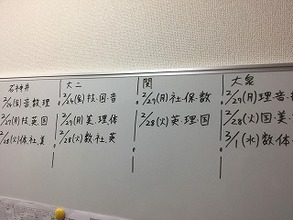 石神井
2/24(金)音数理
2/27(月)技英国
2/28(火)体社.美
大二
2/24(金)技・国・音
2/27(月)美・理・体
2/28(火)数・社・英
関
2/27(月)社・保・数
2/28(火)英・理・国
大泉
2/27(月)理・音・
2/28(火)国・美・
3/1(水)数・体・